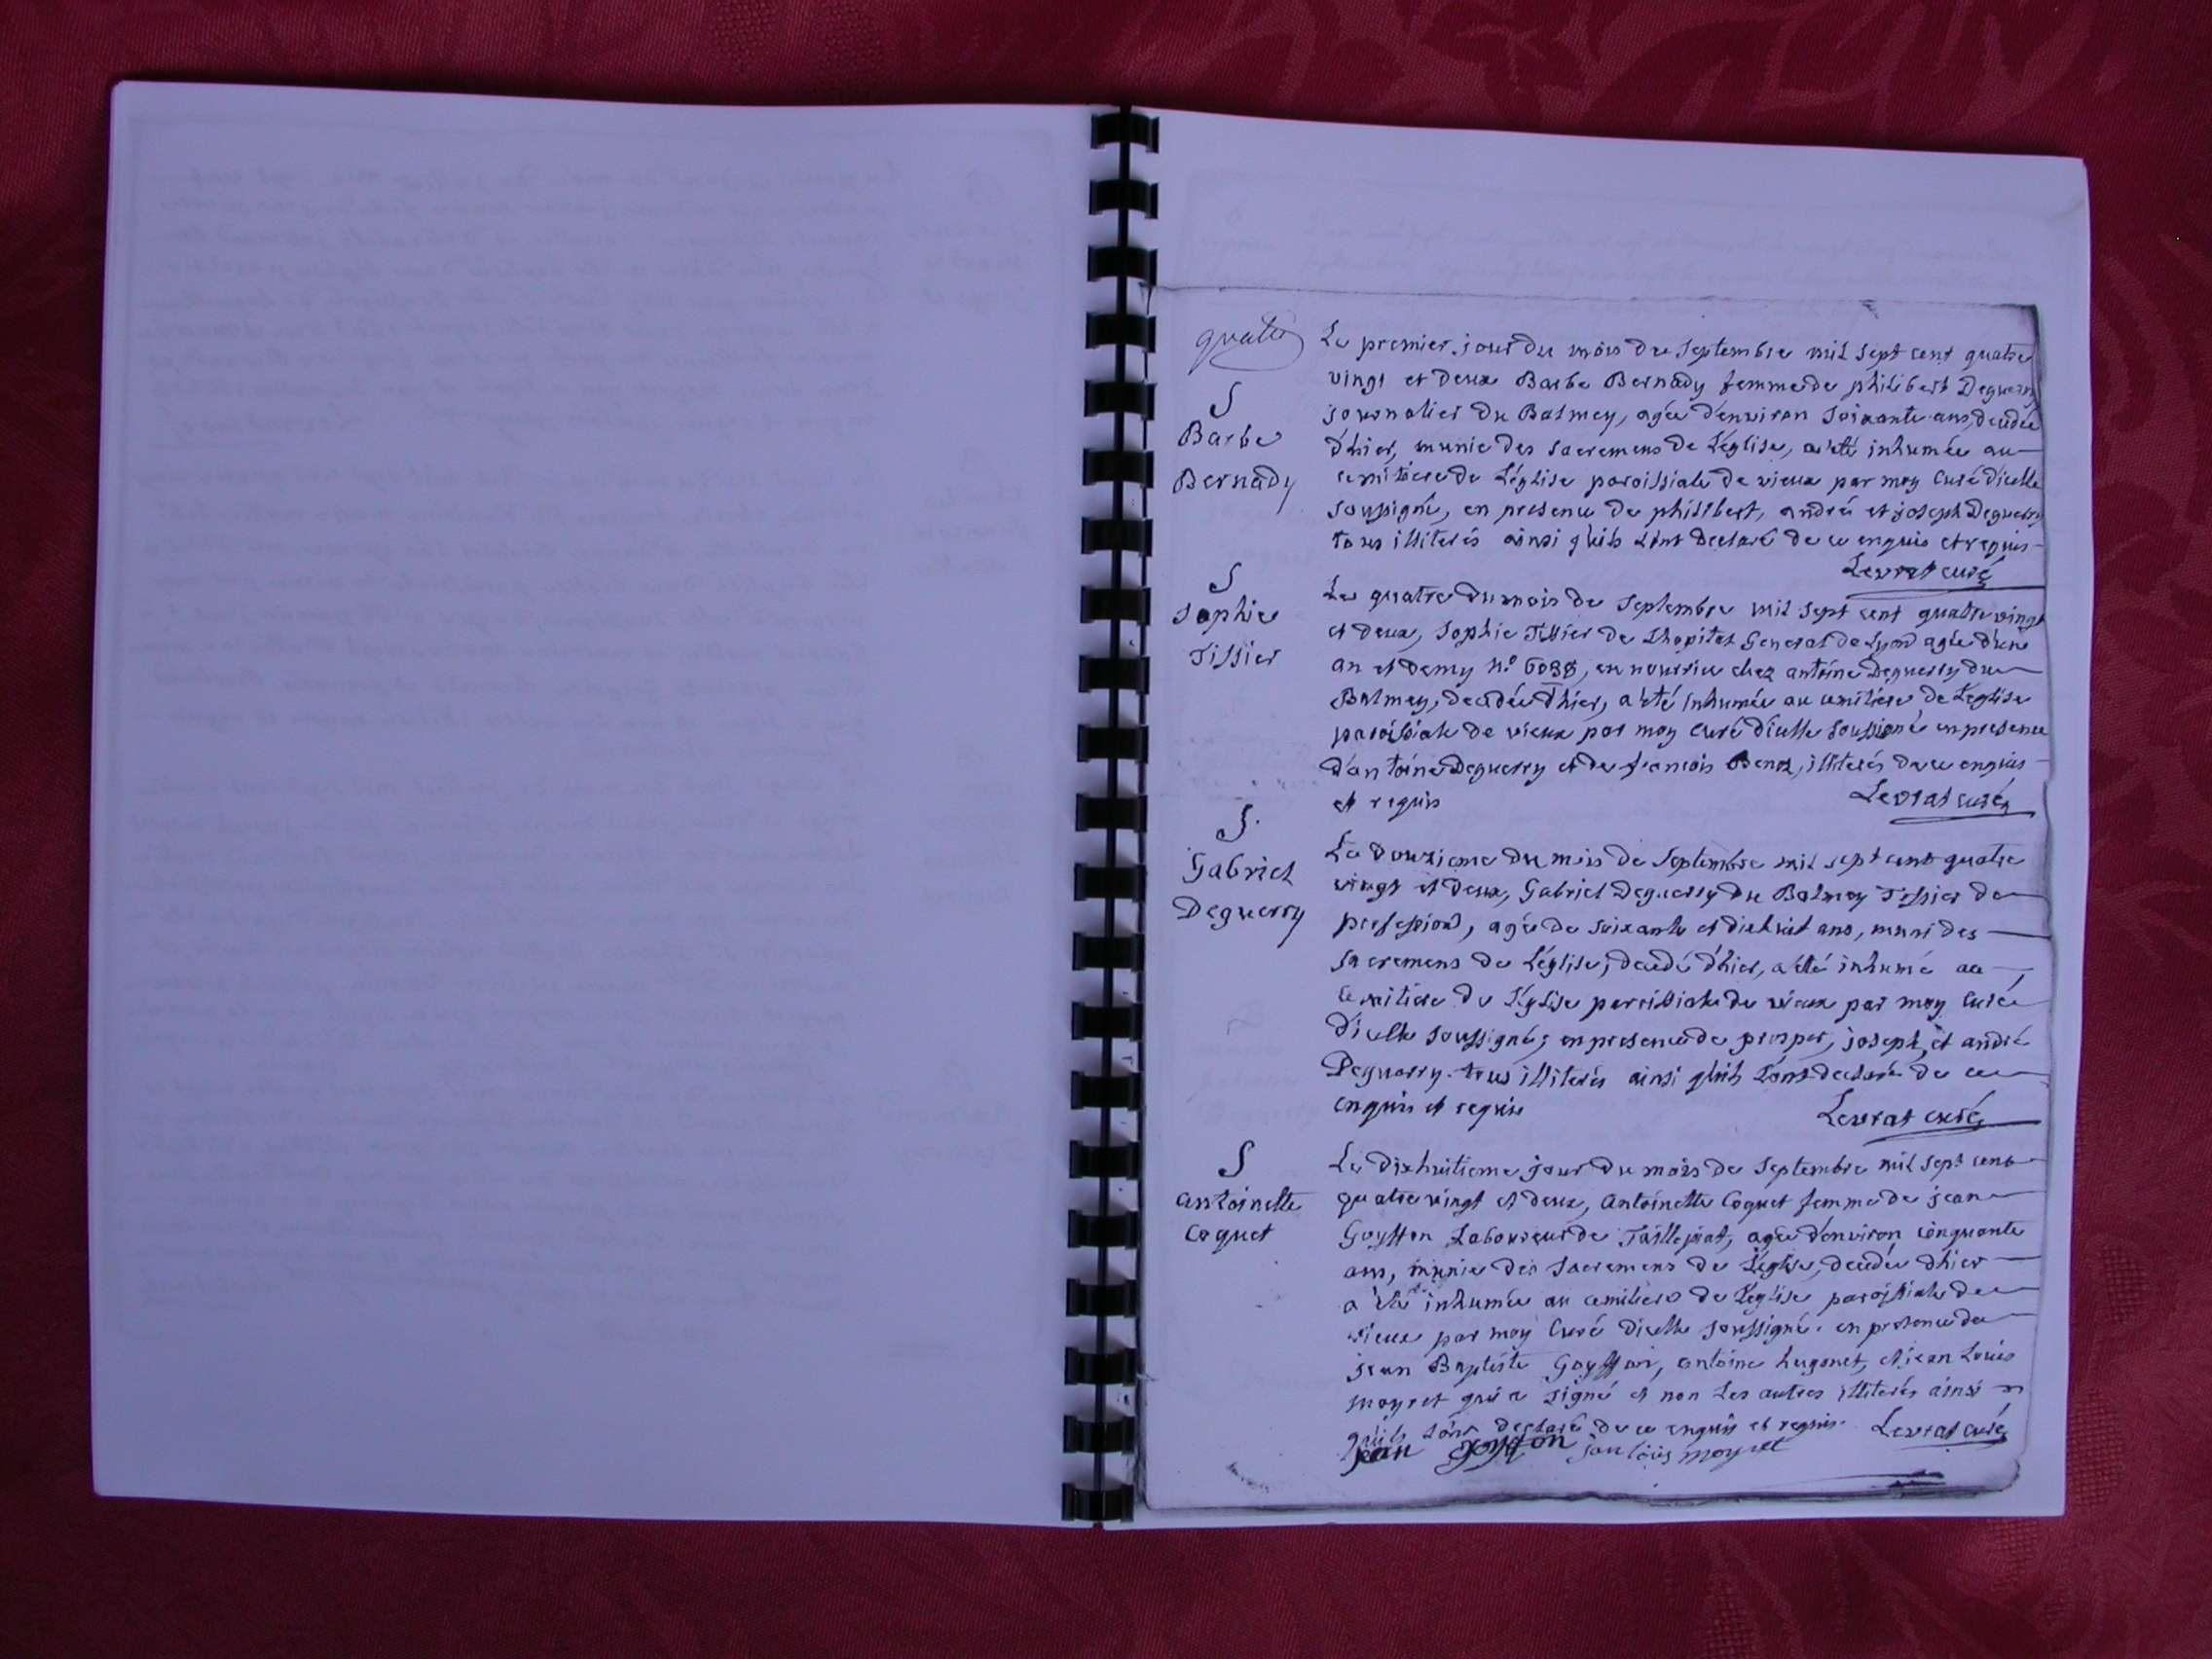 quatre
S
Barbe
Bernady
Le premier jour du mois de Septembre mil sept cent quatre
vingt et deux Barbe Bernady femme de philibert Deguerry
journalier du Balmey, agée d'environ soixante ans, decedée
d'hier, munie des sacremens de L'église, a été inhumée au
cemitiere de L'église paroissiale de vieux par moy Curé d'icelle
soussigné, en presence de philibert, andré et joseph Deguerry
tous illiterés ainsi qu'ils L'ont declaré de ce enquis et requis
Levrat curé
S
Sophie
Tissier
Le quatre du mois de Septembre mil sept cent quatre vingt
et deux, Sophie Tissier de Lhopital General de Lyon agée d'un
an et demy n.o 6038, en nourrice chez antoine Deguerry du
Balmey, decedée d'hier, a été inhumée au cemitiere de L'eglise
paroissiale de vieux par moy curé d'icelle soussigné en presence
d'antoine Deguerry et de francois Benoz, illiterés de ce enquis
et requis
Levrat curé
S.
Gabriel
Deguerry
Le douzieme du mois de Septembre mil sept cent quatre
vingt et deux, Gabriel Deguerry du Balmey Tissier de
perfession, agée de soixante et dixhuit ans, muni des
sacremens de L'église, decedé d'hier, a été inhumé au
Cemitiere de L'église parroissiale de vieux par moy Curé
d'icelle soussigné, en presence de prosper, joseph, et andré
Deguerry tous illiterés ainsi qu'ils L'ont declaré de ce
enquis et requis
Levrat curé
S
antoinette
Coquet
Le dixhuitieme jour du mois de Septembre mil sept cent
quatre vingt et deux, Antoinette Coquet femme de jean
Goyffon Laboureur de Taillepiat, agée d'environ cinquante
ans, munie des sacremens de L'église, decedée d'hier
a été inhumée au cemitiere de L'eglise paroissiale de
vieux par moy Curé d'icelle soussigné en presence de
jean Baptiste Goyffon, antoine hugonet, et jean Louis
moyret qui a signé et non Les autres illiterés ainsi
qu'ils L'ont declaré de ce enquis et requis. Levrat curé
jean goyffon jan lois moyret